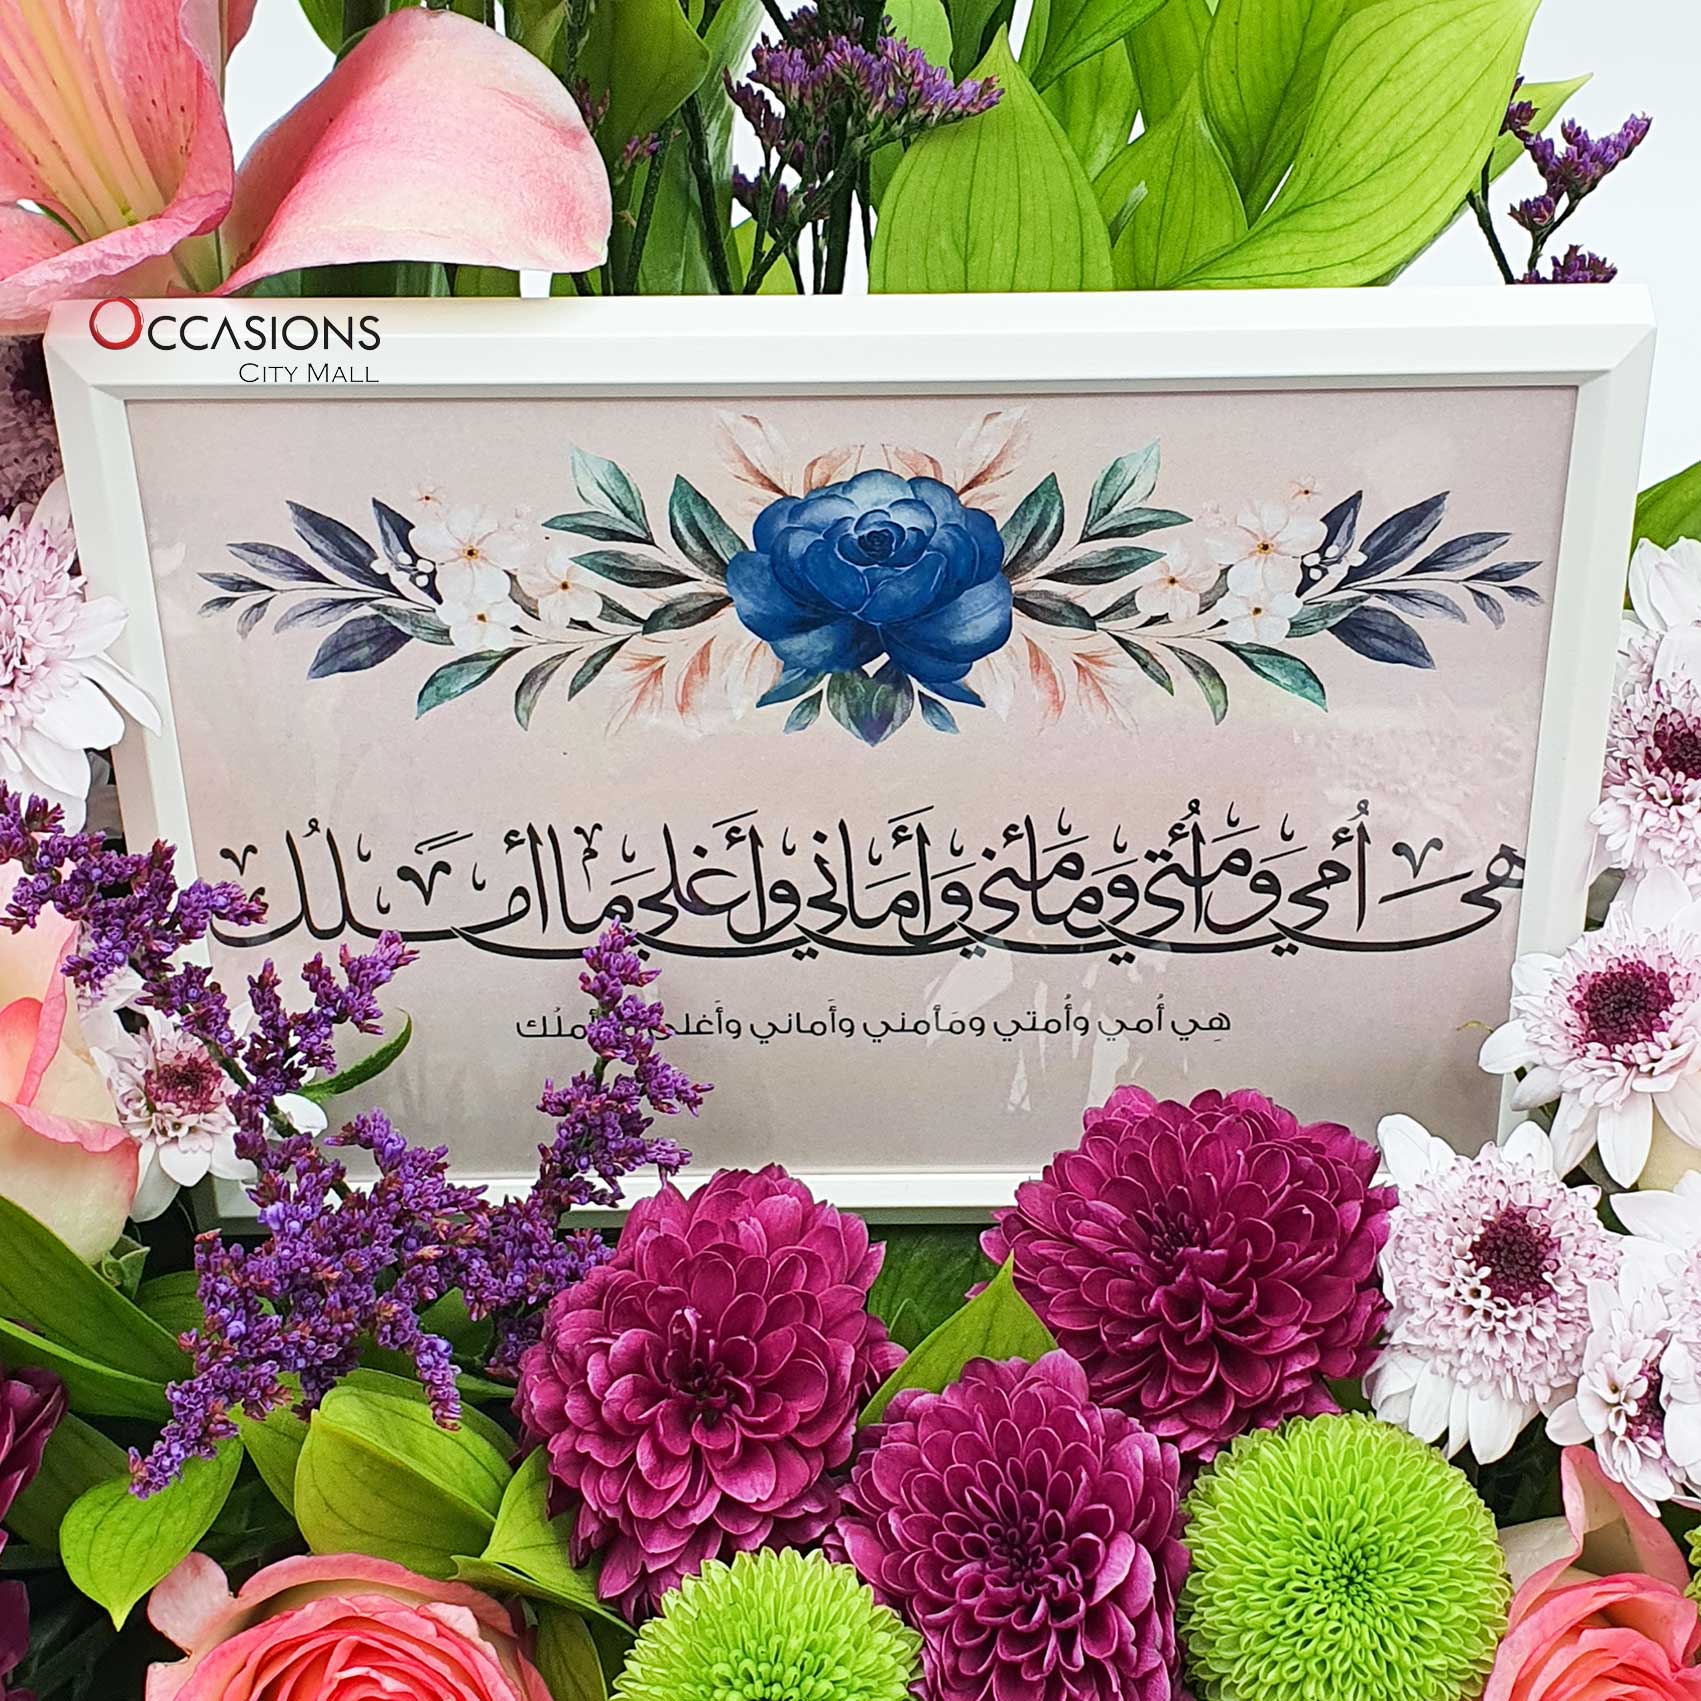 OCCASIONS
CITY MALL
هِيَ أُمي وَمأُتي ومأمَني وَأَمَاني وأَغلى مَا أمَلُك
هِي أُمي وأُمتي ومَأمني وأَماني وأَغلى أملُك